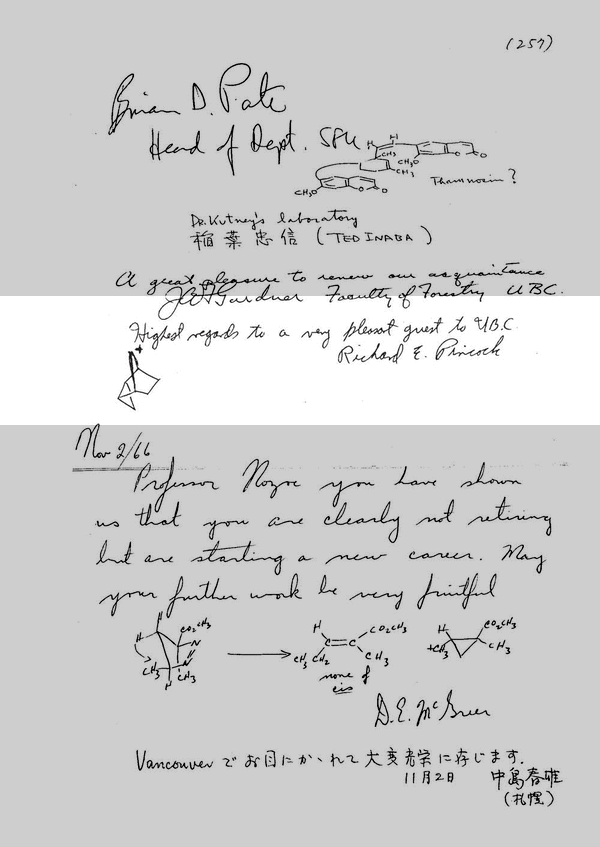 (257)
Brian D. Pate
Head of Dept. SFU
H H
CH3
CH3O
CH3
O O
CH3O
O O
Thamnosin?
Dr. Kutney's laboratory
稲葉忠信 (TED INABA)
A great pleasure to renew our acquaintance
JAF Gardner Faculty of Forestry UBC.
Highest regards to a very pleasant guest to U.B.C.
Richard E. Pincock
+
Nov 2/66
Professor Nozoe you have shown
us that you are clearly not retiring
but are starting a new career. May
your further work be very fruitful
H
H CO2CH3
N
N
CH3 CH3
H
H
C=C
CO2CH3
CH3CH2
CH3
none of
cis
H CO2CH3
+CH3 CH3
D.E. McGreer
Vancouver でお目にかゝれて大変光栄に存じます.
11月2日 中島春雄
(札幌)